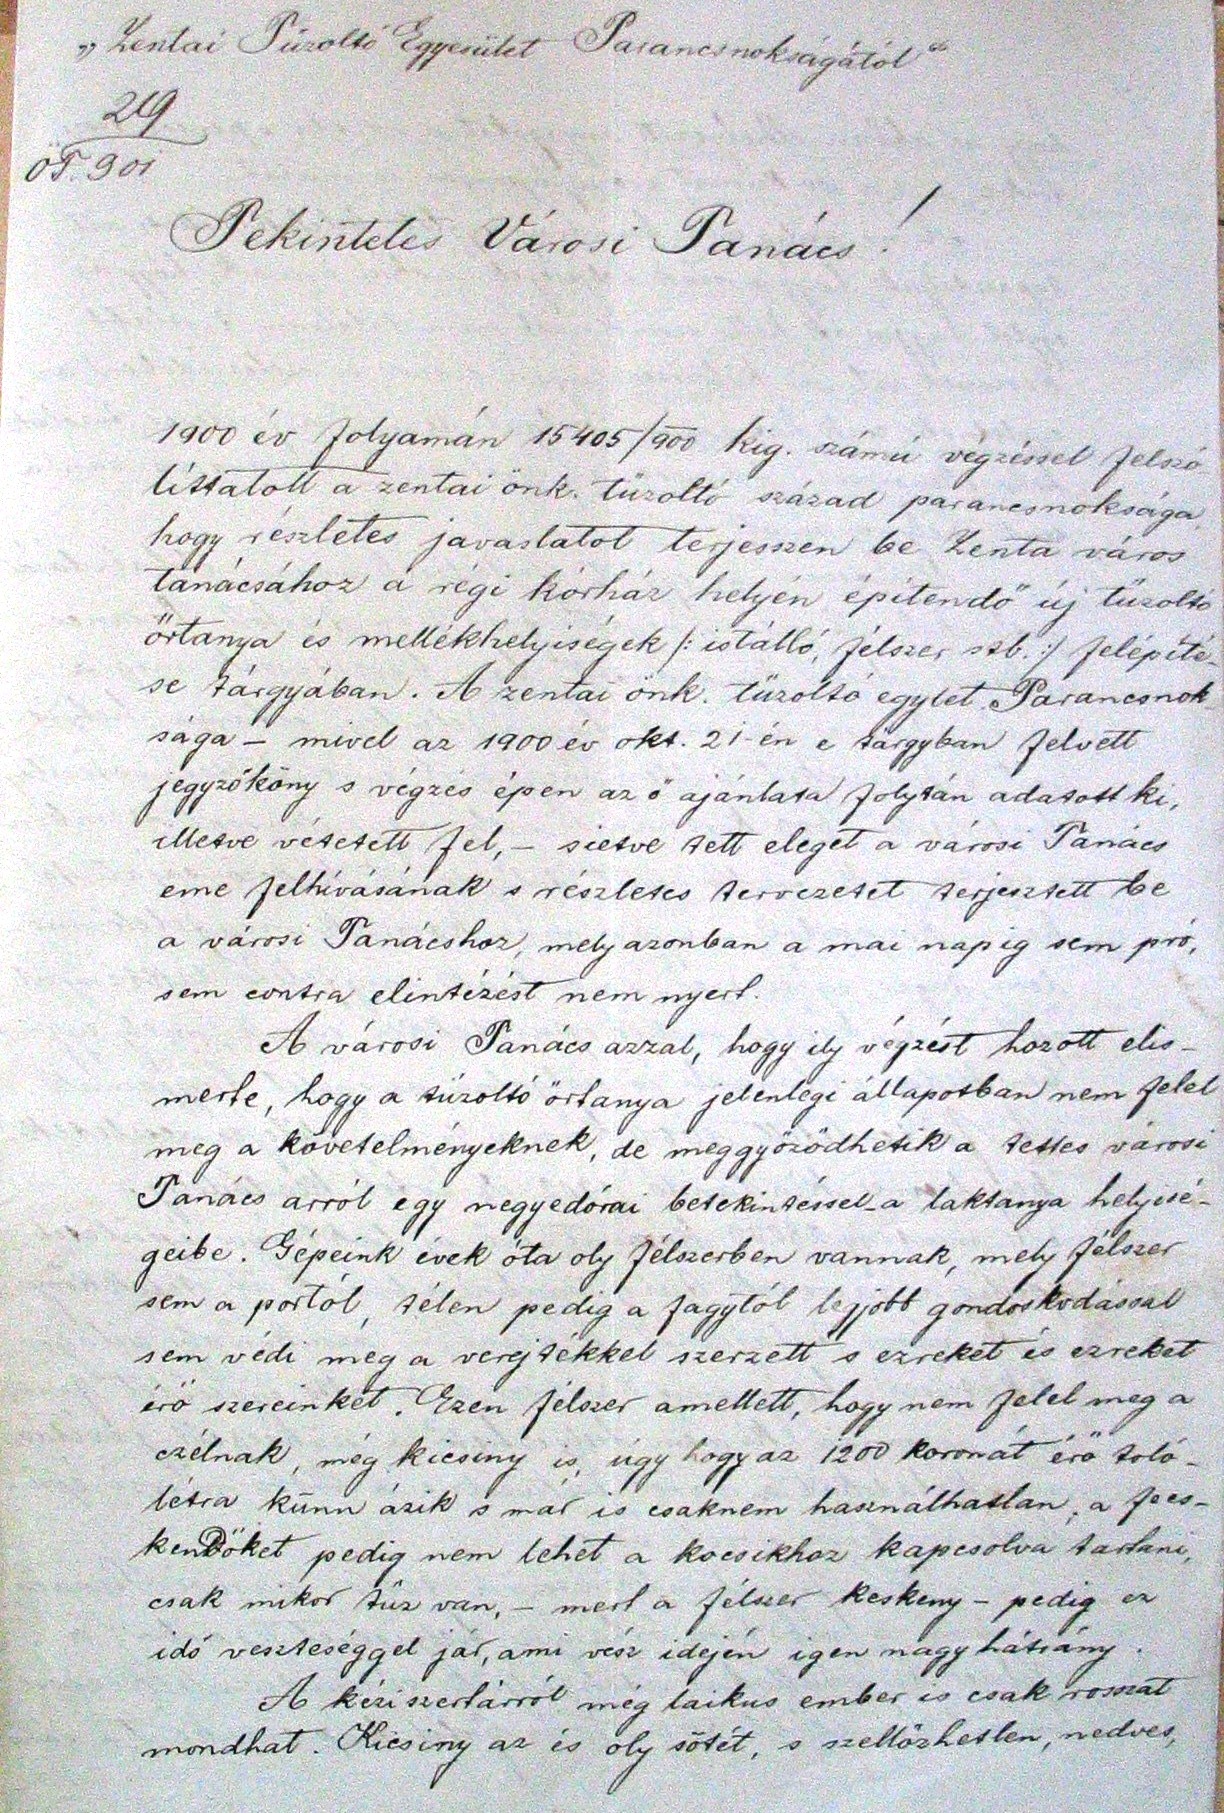 „Zentai Tűzoltó Egyesület Parancsnokságától"
29
ÖT. 901
Tekintetes Városi Tanács!
1900 év folyamán 15405/900 kig. számú végzéssel felszó
littatott a zentai önk. tűzoltó század parancsnoksága,
hogy részletes javaslatot terjesszen be Zenta város
tanácsához a régi kórház helyén építendő új tűzoltó
őrtanya és mellékhelyiségek /: istálló, félszer stb. :/ felépíté-
se tárgyában. A zentai önk. tűzoltó egylet Parancsnok
sága – mivel az 1900 év okt. 21-én e tárgyban felvett
jegyzőköny s végzés épen az ő ajánlata folytán adatott ki,
illetve vétetett fel, – sietve tett eleget a városi Tanács
eme felhívásának s részletes tervezetet terjesztett be
a városi Tanácshoz, mely azonban a mai napig sem pró,
sem contra elintézést nem nyert.
A városi Tanács azzal, hogy ily végzést hozott elis-
merte, hogy a tűzoltó őrtanya jelenlegi állapotban nem felel
meg a követelményeknek, de meggyőződhetik a tettes városi
Tanács arról egy negyedórai betekintéssel a laktanya helyisé-
geibe. Gépeink évek óta oly félszerben vannak, mely félszer
sem a portól, télen pedig a fagytól legjobb gondoskodással
sem védi meg a verejtékkel szerzett s ezreket és ezreket
érő szereinket. Ezen félszer amellett, hogy nem felel meg a
czélnak, még kicsiny is, úgy hogy az 1200 koronát érő toló-
létra künn ázik s már is csaknem használhatlan, a fecs-
kendőket pedig nem lehet a kocsikhoz kapcsolva tartani,
csak mikor tűz van, – mert a félszer keskeny – pedig ez
idő veszteséggel jár, ami vész idején igen nagy hátrány.
A kézi szertárról még laikus ember is csak rosszat
mondhat. Kicsiny az és oly sötét, s szellőzhetlen, nedves,